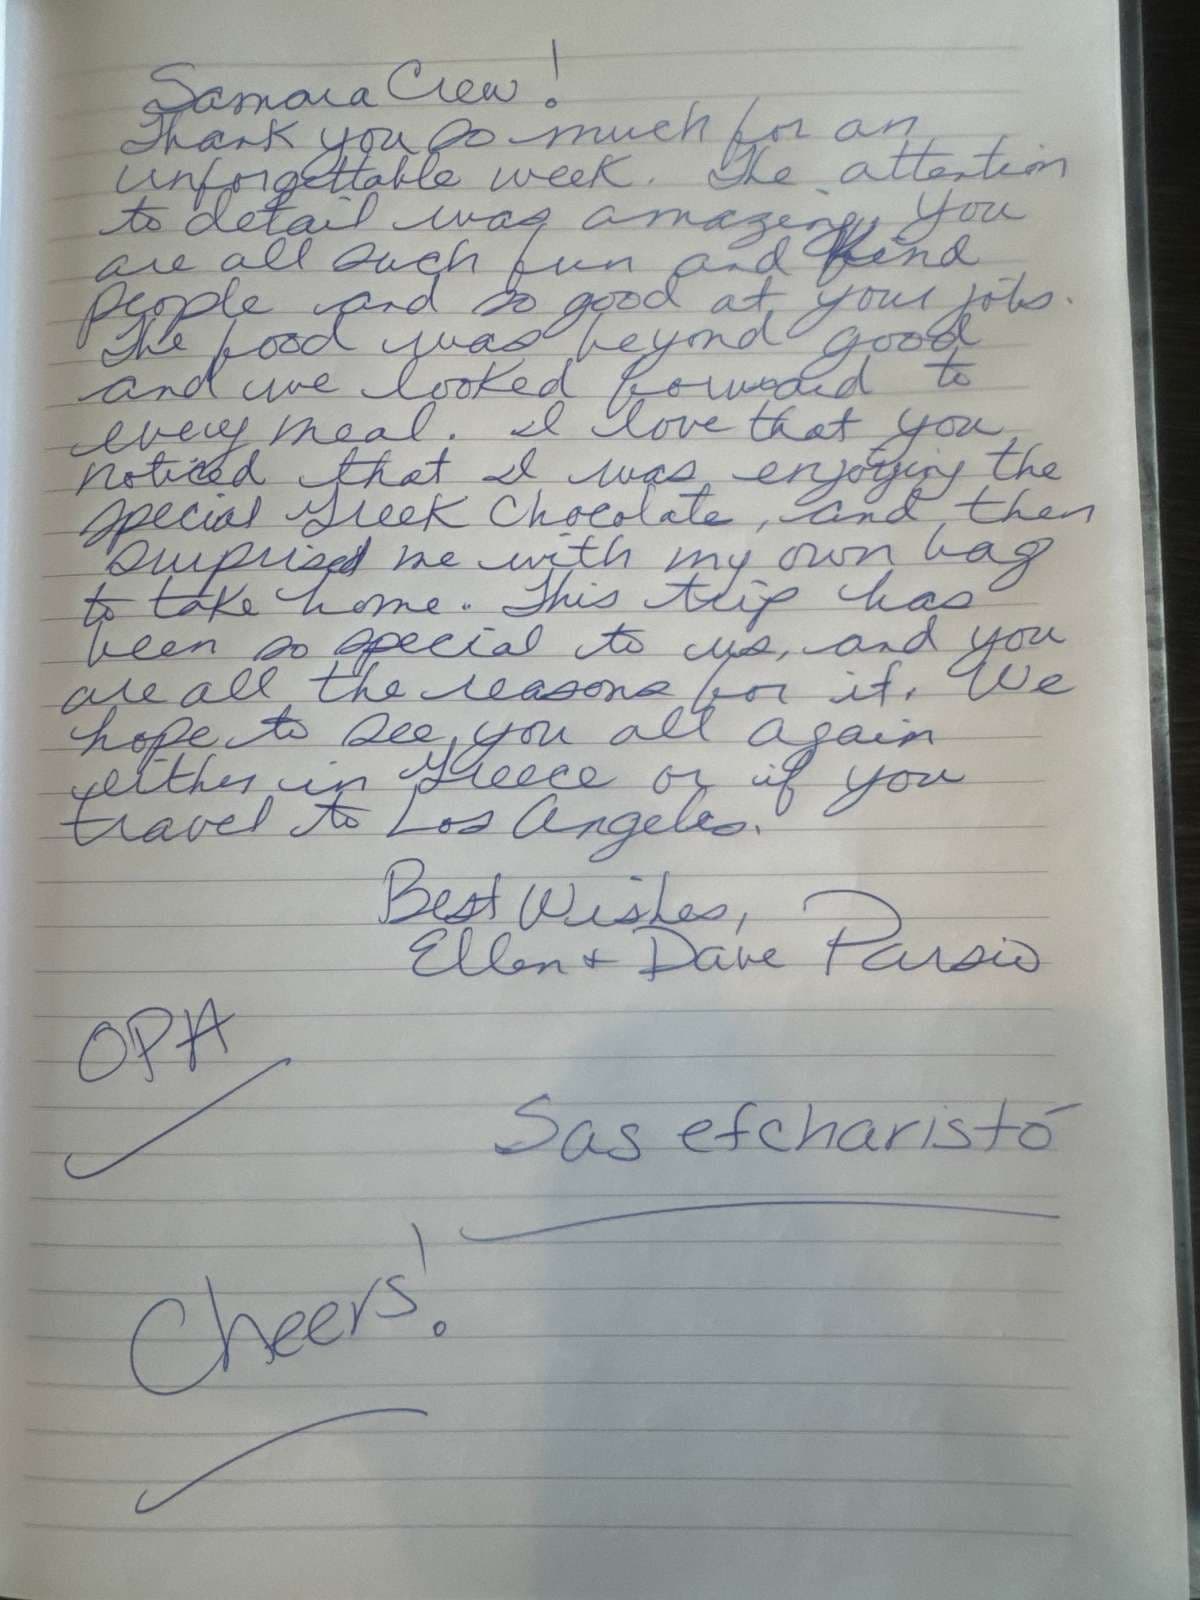 Samara Crew!
Thank you so much for an
unforgettable week. The attention
to detail was amazing. You
are all such fun and kind
people and so good at your jobs.
The food was beyond good
and we looked forward to
every meal. I love that you
noticed that I was enjoying the
special Greek Chocolate, and then
surprised me with my own bag
to take home. This trip has
been so special to us, and you
are all the reasons for it. We
hope to see you all again
either in Greece or if you
travel to Los Angeles.
Best Wishes,
Ellen + Dave
OPA
Sas efcharistó
Cheers!